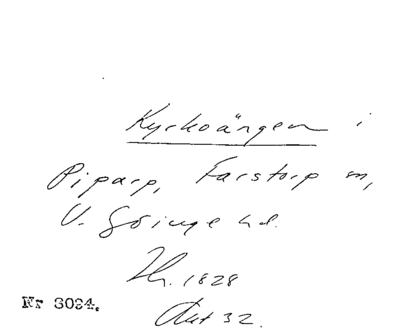 Kyrkoängen i
Piparp, Farstorp sn,
V. Göinge hd.
1828
Nr 3024.
Akt 32.